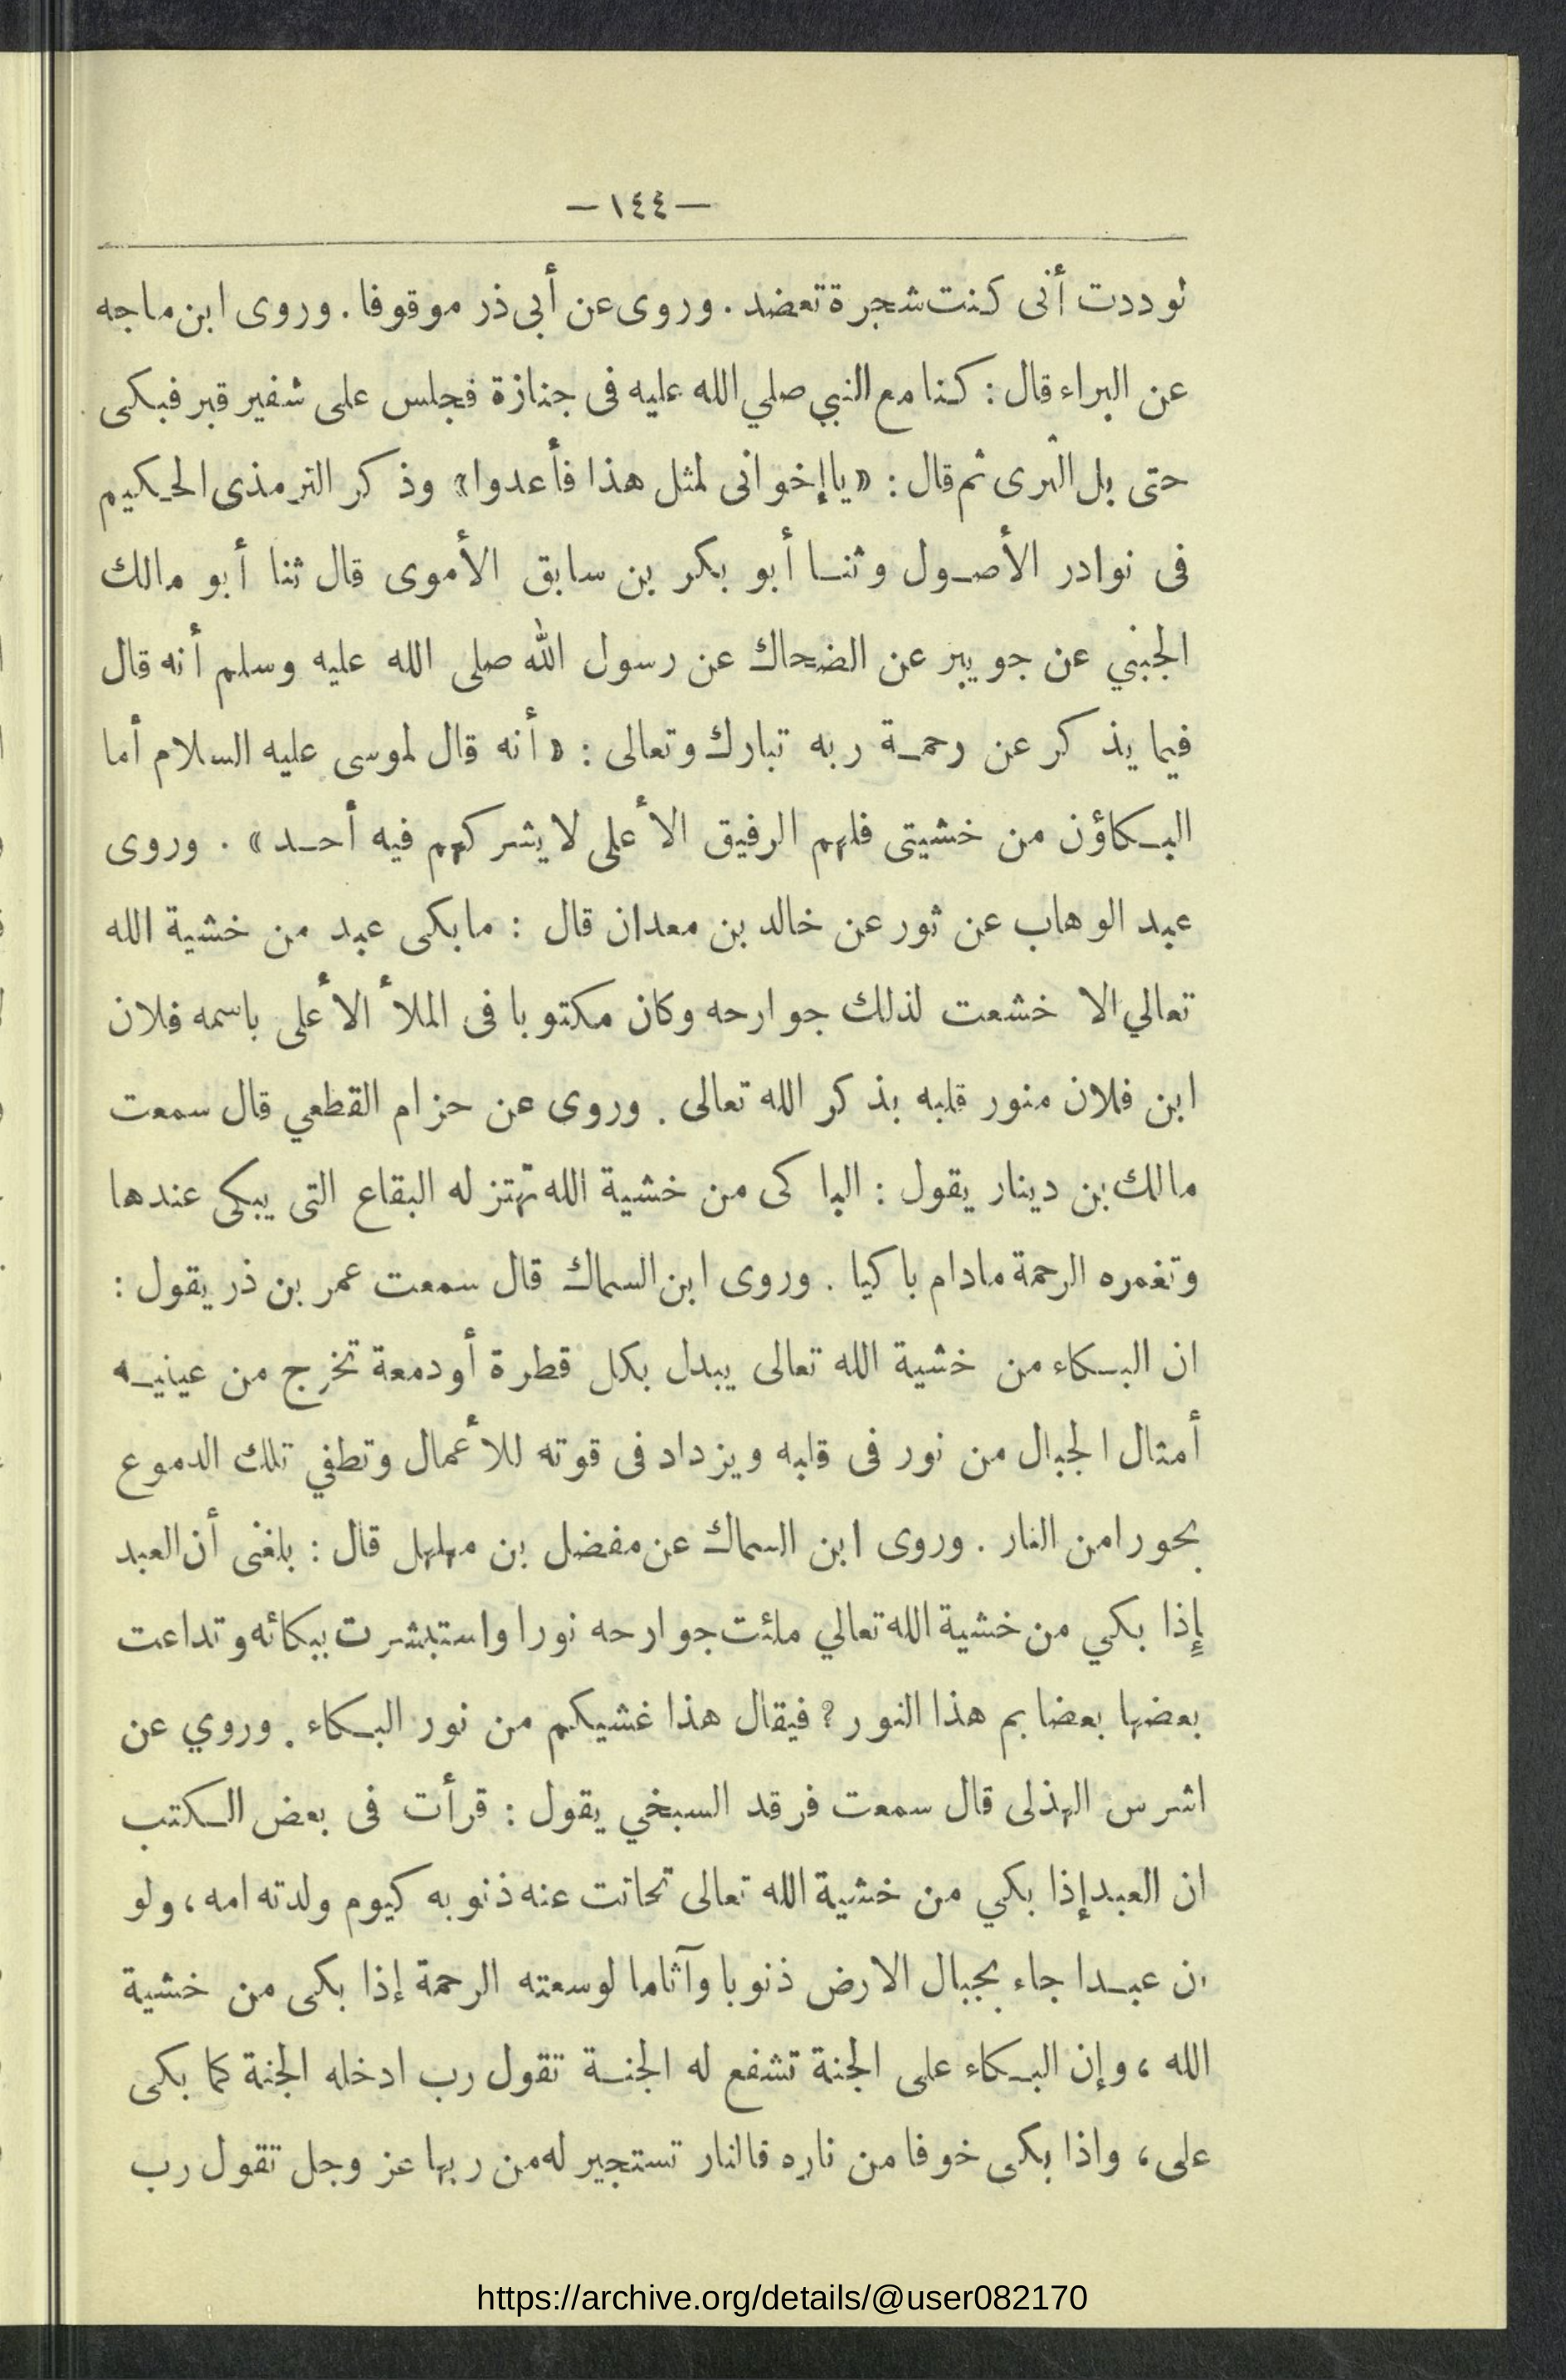 —١٤٤—
لوددت أنى كنت شجرة تعضد . وروى عن أبى ذر موقوفا . وروى ابن ماجه
عن البراء قال : كنا مع النبي صلي الله عليه فى جنازة فجلس على شفير قبر فبكى
حتى بل الثرى ثم قال : «يا إخوانى لمثل هذا فأعدوا» وذكر الترمذى الحكيم
فى نوادر الأصول وثنا أبو بكر بن سابق الأموى قال ثنا أبو مالك
الجنبي عن جويبر عن الضحاك عن رسول الله صلى الله عليه وسلم أنه قال
فيما يذكر عن رحمة ربه تبارك وتعالى : «أنه قال لموسى عليه السلام أما
البكاؤن من خشيتى فلهم الرفيق الأعلى لا يشركهم فيه أحد» . وروى
عبد الوهاب عن ثور عن خالد بن معدان قال : ما بكى عبد من خشية الله
تعالي الا خشعت لذلك جوارحه وكان مكتوبا فى الملأ الأعلى باسمه فلان
ابن فلان منور قلبه بذكر الله تعالى . وروى عن حزام القطعي قال سمعت
مالك بن دينار يقول : الباكى من خشية الله تهتز له البقاع التى يبكى عندها
وتغمره الرحمة مادام باكيا . وروى ابن السماك قال سمعت عمر بن ذر يقول :
ان البكاء من خشية الله تعالى يبدل بكل قطرة أو دمعة تخرج من عينيه
أمثال الجبال من نور فى قلبه ويزداد فى قوته للأعمال وتطفي تلك الدموع
بحورا من النار . وروى ابن السماك عن مفضل بن مهلهل قال : بلغنى أن العبد
إذا بكي من خشية الله تعالي ملئت جوارحه نورا واستبشرت ببكائه وتداعت
بعضها بعضا بم هذا النور ؟ فيقال هذا غشيكم من نور البكاء . وروي عن
اشرس الهذلى قال سمعت فرقد السبخي يقول : قرأت فى بعض الكتب
ان العبد إذا بكي من خشية الله تعالى تحاتت عنه ذنوبه كيوم ولدته امه ، ولو
ان عبدا جاء بجبال الارض ذنوبا وآثاما لوسعته الرحمة إذا بكى من خشية
الله ، وإن البكاء على الجنة تشفع له الجنة تقول رب ادخله الجنة كما بكى
على ، واذا بكى خوفا من ناره فالنار تستجير له من ربها عز وجل تقول رب
https://archive.org/details/@user082170